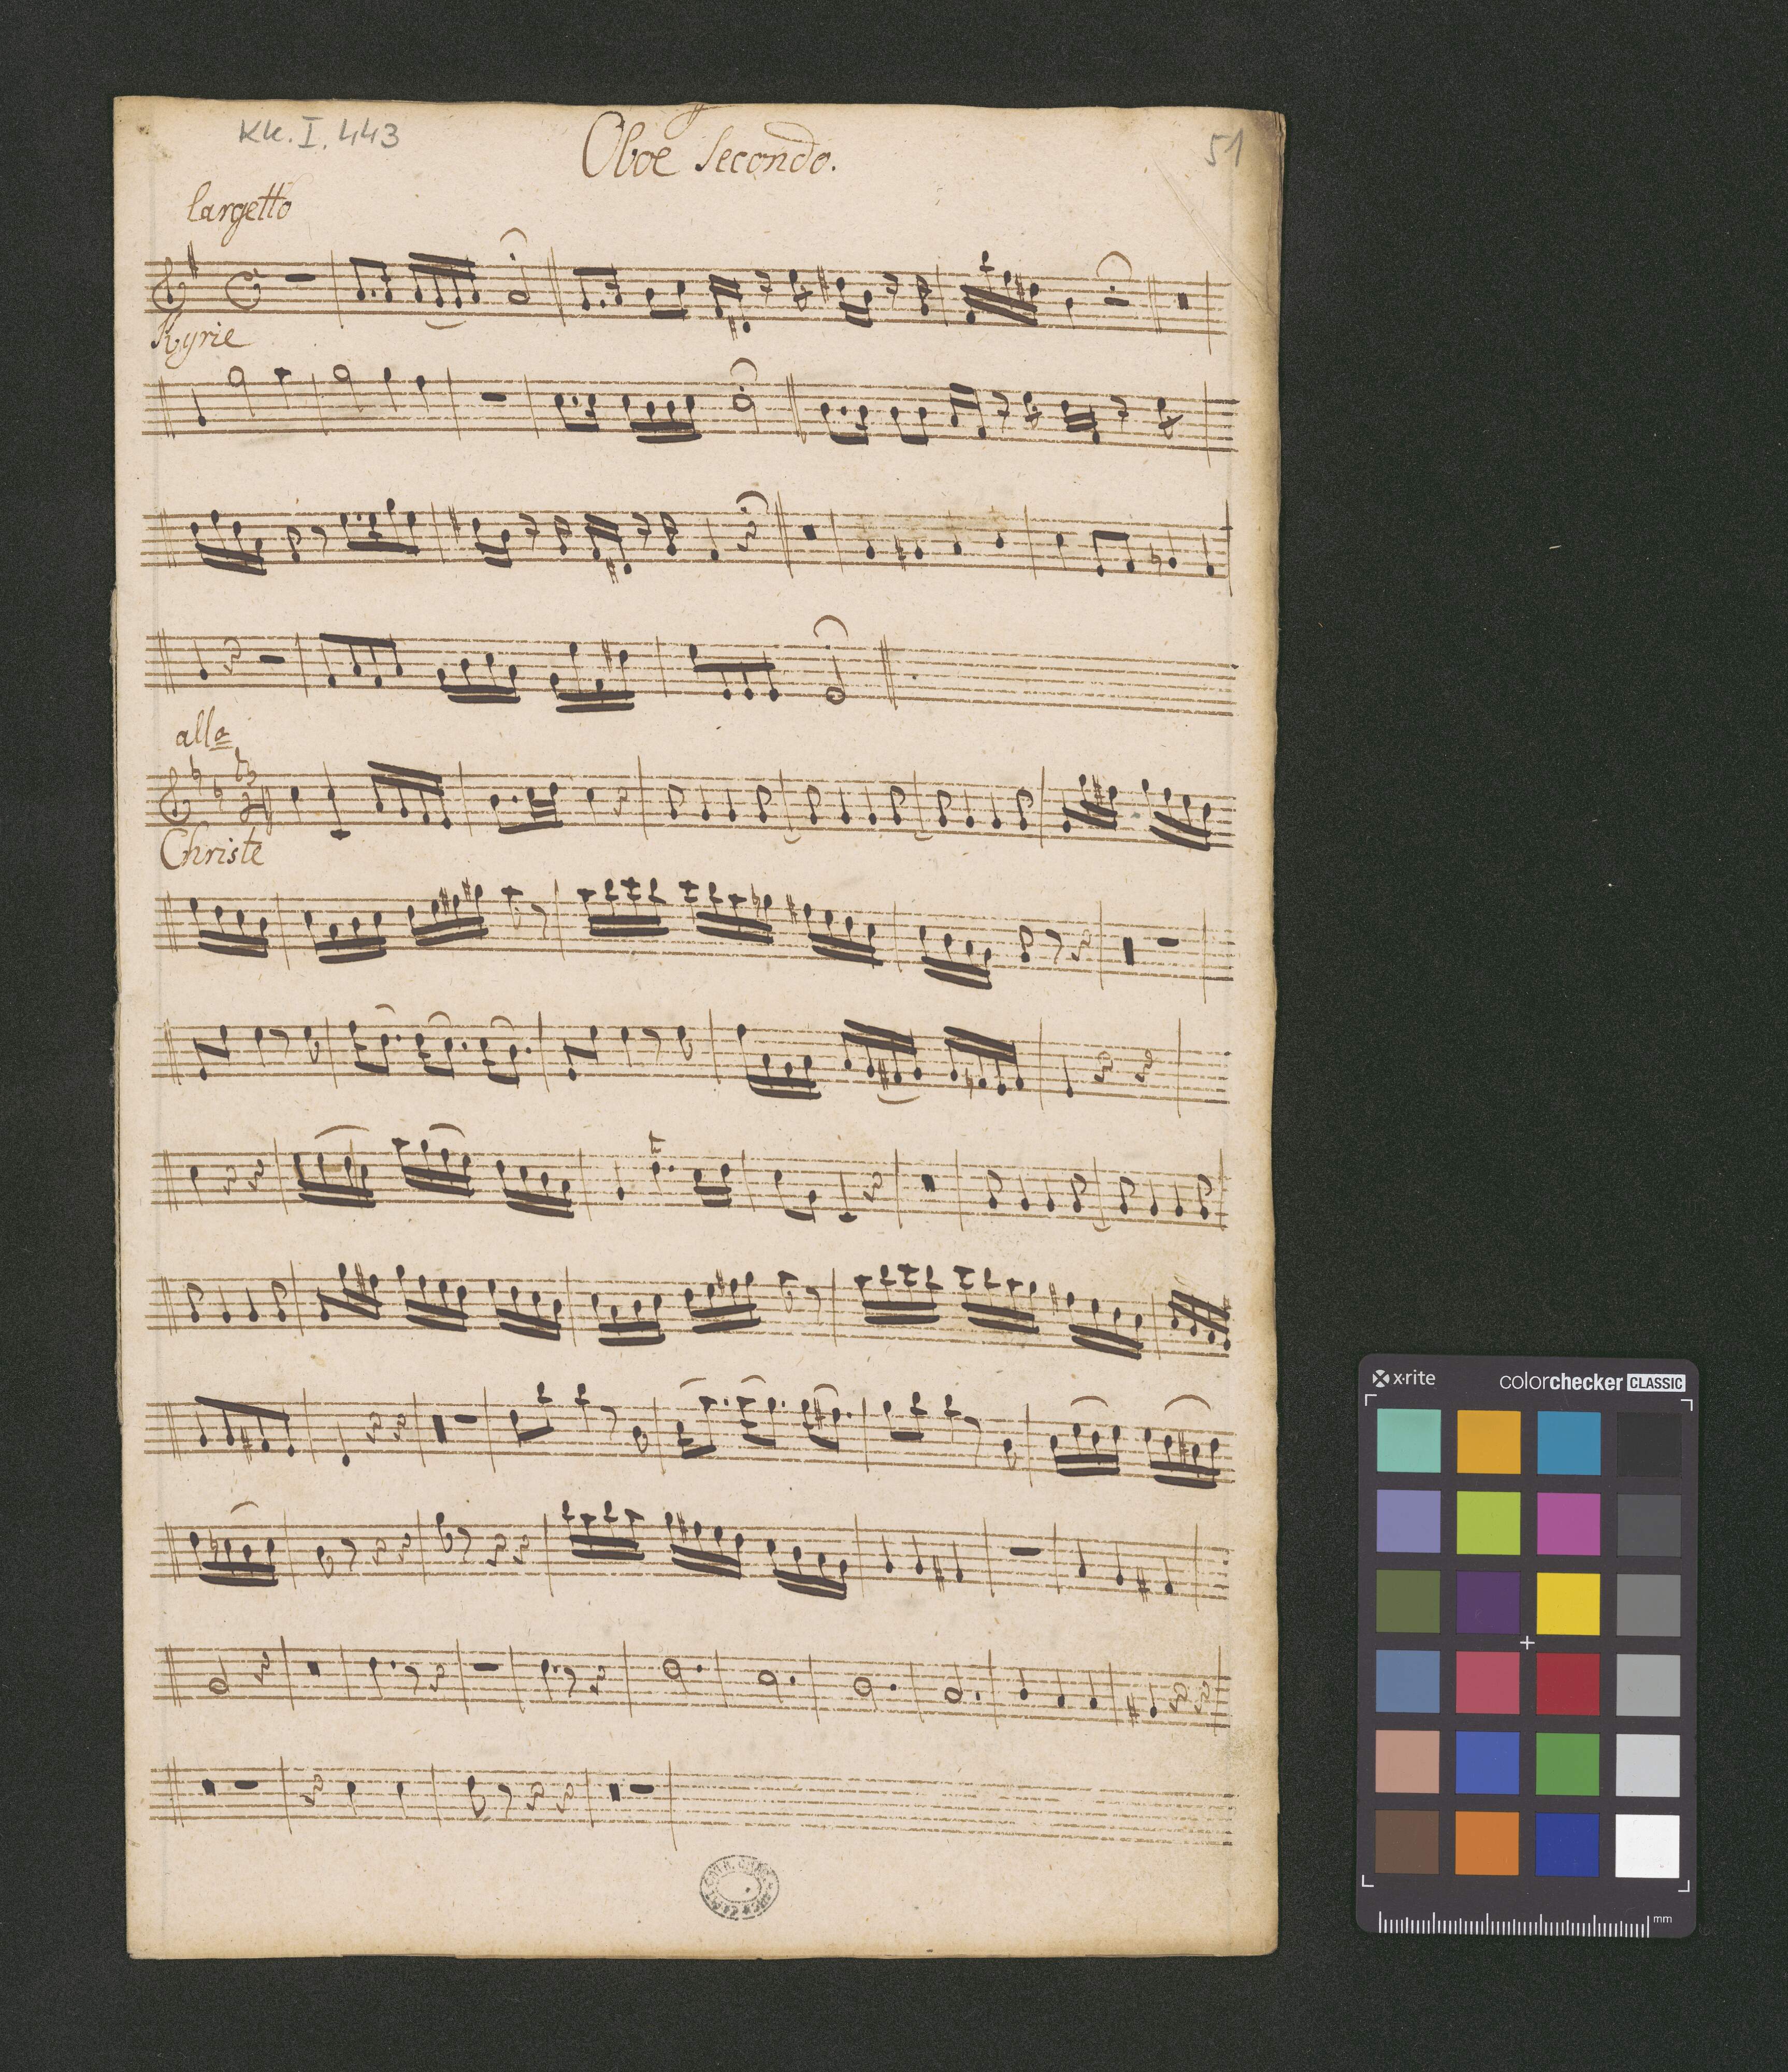 KK. I. 443
Oboe Secondo.
51
largetto
Kyrie
allo
Christe
x-rite
colorchecker CLASSIC
mm